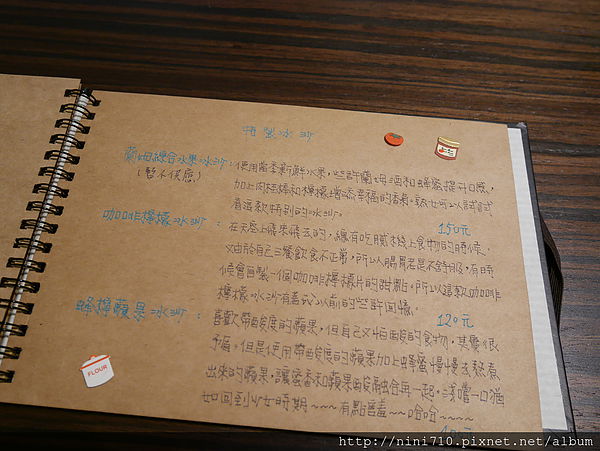 特製冰沙
蘭姆綜合水果冰沙：使用當季新鮮水果，些許蘭姆酒和蜂蜜提升口感，
(暫不供應)
加上肉桂棒和檸檬增添幸福的香氣，熟女可以試試
看這款特別的冰沙。
150元
咖啡檸檬冰沙：在天空上飛來飛去的，總有吃膩機上食物的時候，
又由於自己三餐飲食不正常，所以腸胃老是不舒服，有時
候會自製一個咖啡檸檬片的甜點，所以這款咖啡
檸檬冰沙有著我以前的些許回憶。
120元
蜂檸蘋果冰沙：喜歡帶酸度的蘋果，但自己又怕酸的食物，其實很
矛盾。但是使用帶酸度的蘋果加上蜂蜜慢慢去熬煮
出來的蘋果，讓蜜香和蘋果酸融合再一起，淺嚐一口猶
如回到少女時期~~~有點害羞~~哈哈~~~~
FLOUR
http://nini710.pixnet.net/album